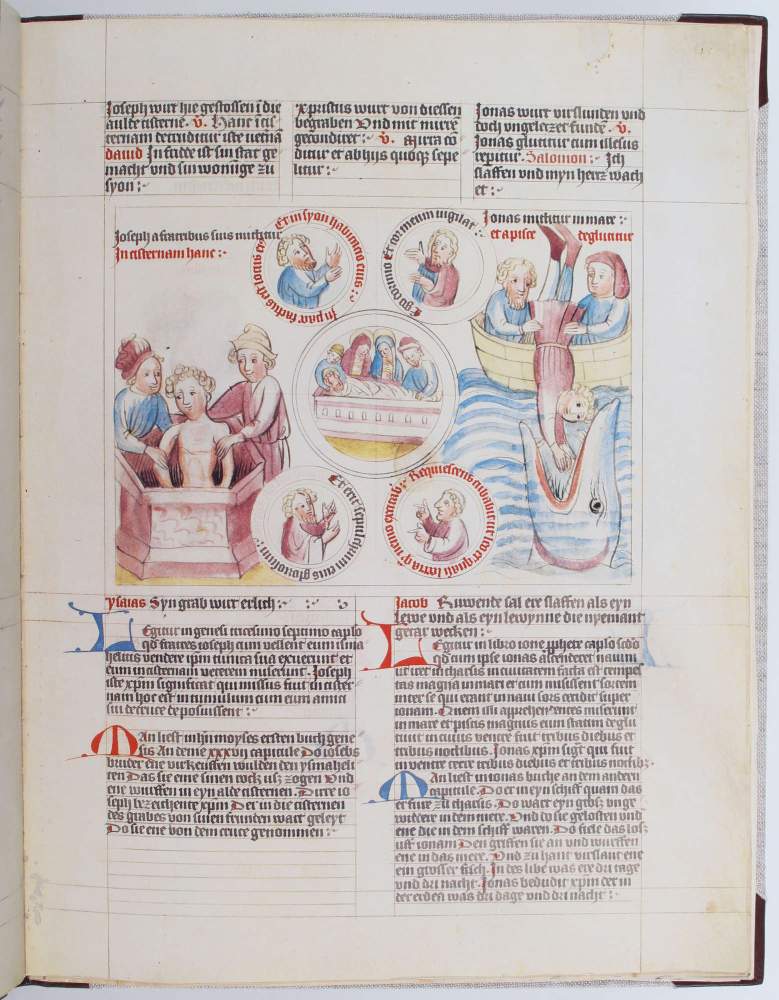 Joseph wirt hie gestossen ī die
aulde cisterne. v. Hanc ī cis
ternam detruditur iste vetnā
dauid In fride ist sin stat ge
macht vnd sin wonūge zu
syon :
xpristus wirt von diessen
begraben Vnd mit mirrē
gecondiret : v. Mirra co
ditur et ab hijs quoqz sepe
litur :
Jonas wirt virslunden vnd
doch vngeletzet funde. v.
Jonas glutitur eum illesus
repitur. Salomon : Ich
slaffen vnd myn hertz wach
et :
Joseph a fratribus suis mittitur
In cisternam hanc :
In pace factus est locus eius
Et in syon habitacio eius :
Ego dormio Et cor meum uigilat
Jonas mittitur in mare :
et a pisce deglutitur
Et erit sepulchrum eius gloriosum :
Requiescens cubabit ut leo
ysaias Syn grab wirt erlich :
Legitur in genesi tricesimo septimo capło
qđ fratres ioseph eum vellent eum isma
helitis vendere ipm tunica sua exuerunt et
eum in cisternam veterem miserunt. Joseph
iste xpm significat qui missus fuit in cister
nam hoc est in tumulum cum eum amici
sui de cruce deposuissent :
Man liest in hin moyses ersten buch gene
sis An deme xxxvii capittule Do iosebs
bruder ene virkeuffen wulden den ysmaheli
ten Das sie eme sinen rock usz zogen Vnd
ene wurffen in eyn alde cisternen. Dirre io
seph bezeichente xpm Der in die cisternen
des grabes von sinen frunden wart geleyt
Do sie ene von dem cruce genommen :
Jacob Ruwende sal ere slaffen als eyn
lewe vnd als eyn lewynne die nyemant
gerar wecken :
Legitur in libro ione pphete capło scđo
qđ cum ipse ionas ascenderet nauim
ut iret in tharsis in ciuitatem facta est tempes
tas magna in mari et cum misissent sortem
inter se qui erant in naui sors cecidit super
ionam. Quem illi apprehendentes miserunt
in mare et piscis magnus eum statim deglu
tiuit in cuius ventre fuit tribus diebus et
tribus noctibus. Jonas xpm sigt qui fuit
in ventre terre tribus diebus et tribus noctibz
Man liest in ionas buche an dem andern
capittule. Do er in eyn schiff quam das
er fure zu tharsis. Do wart eyn grosz vnge
widdere in dem mere. Vnd do sie gelosten vnd
ene die in dem schiff waren. Do fiele das losz
uff ionam Den griffen sie an vnd wurffen
ene in das mere. Vnd zu hant virslant ene
ein grosser fisch. In des libe was ere dri tage
vnd dri nacht. Jonas bedudit xpm der in
der erden was dri dage vnd dri nacht :